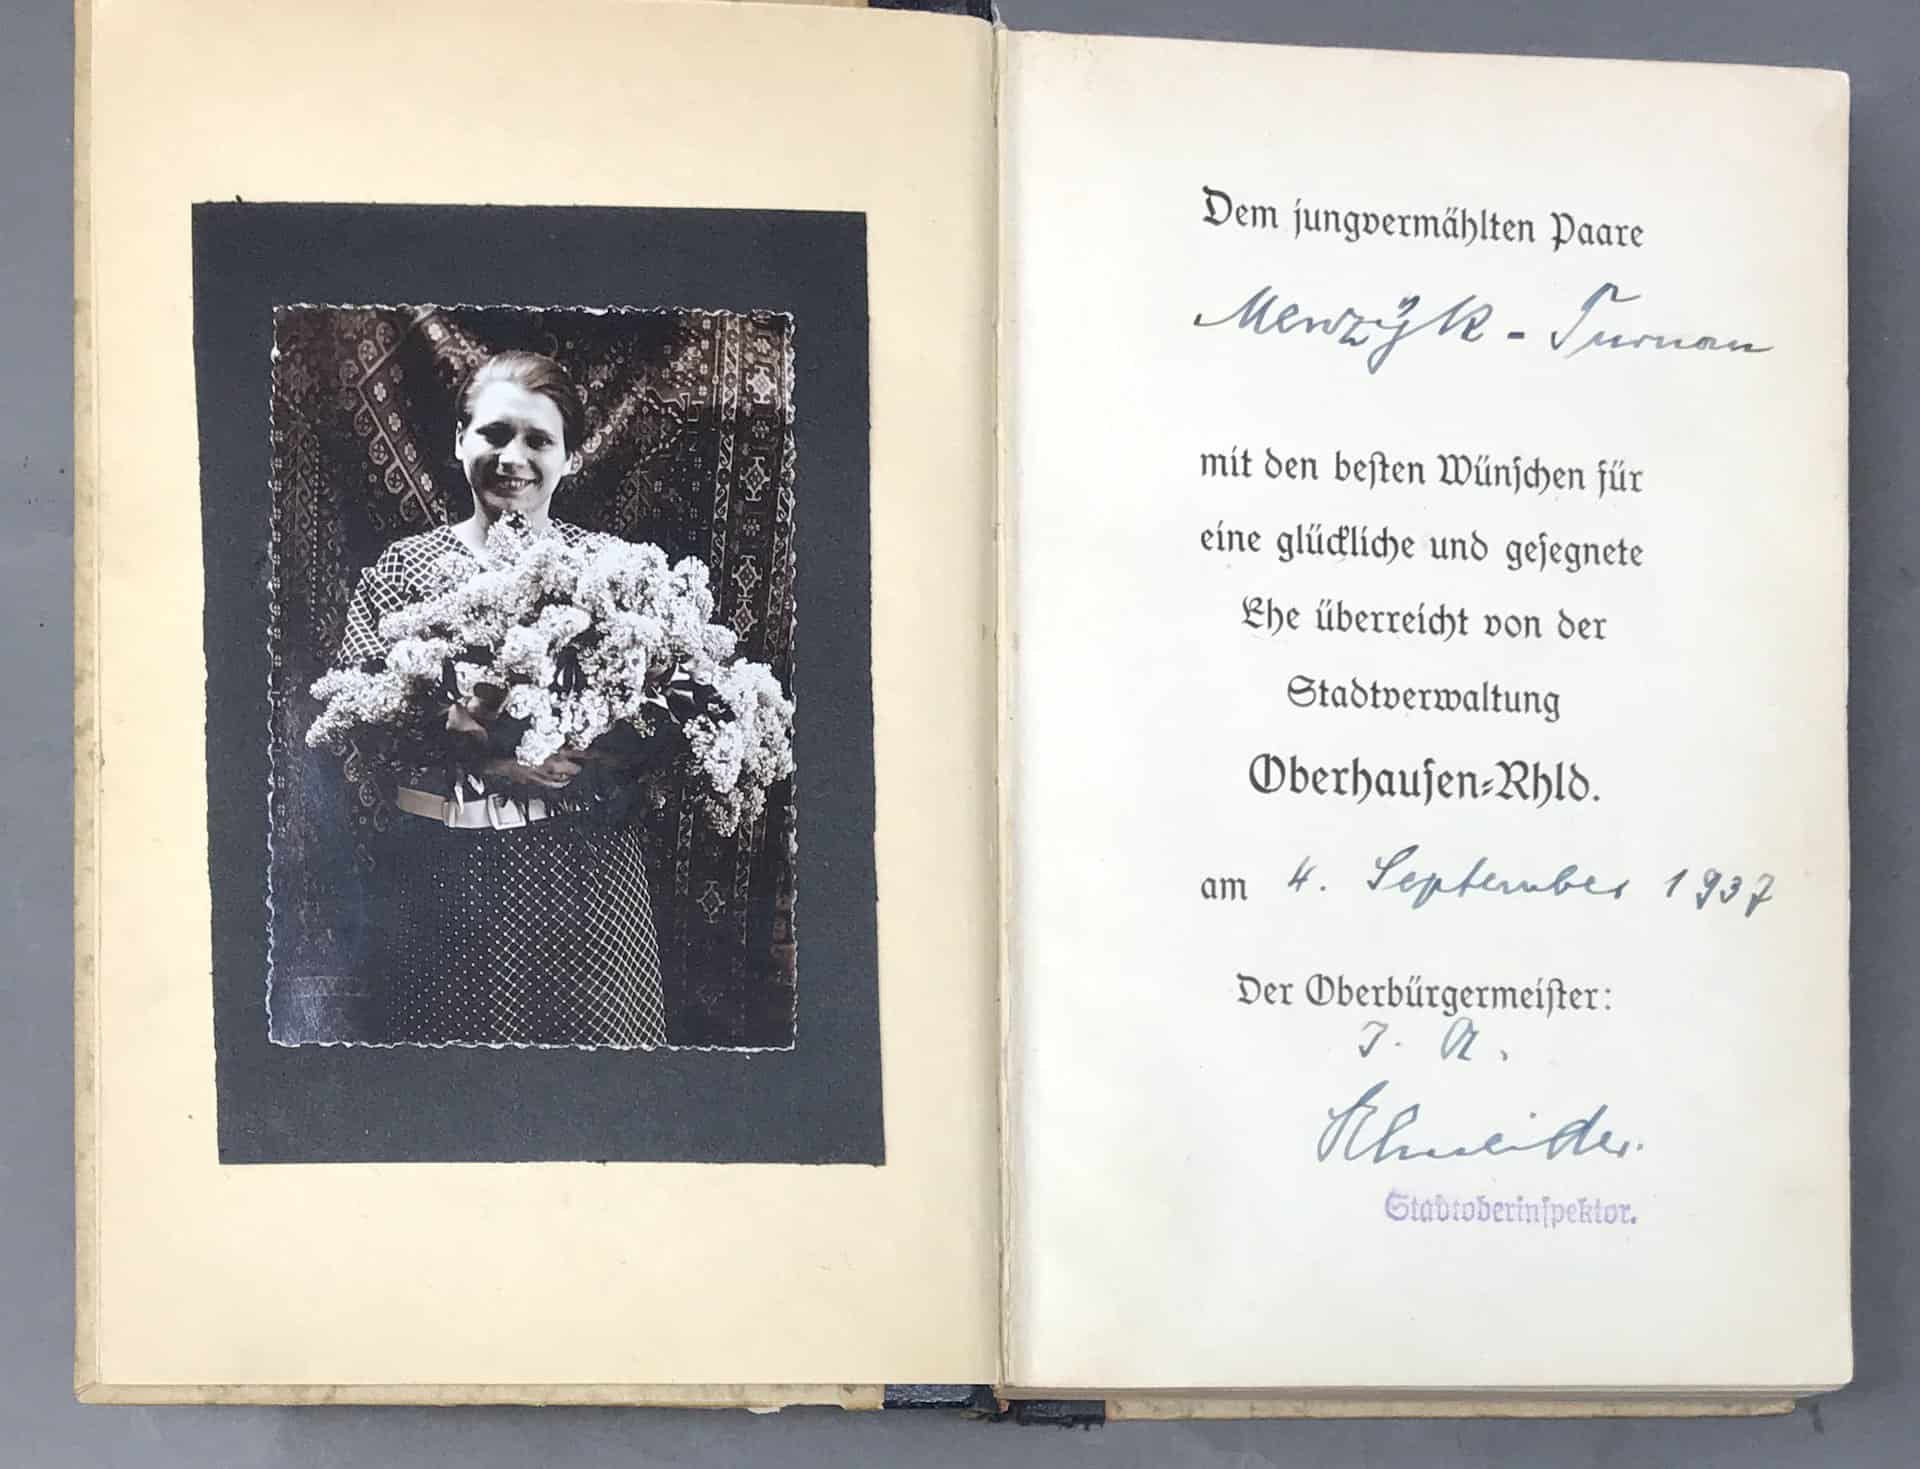 Dem jungvermählten Paare
Merzyk - Turnau
mit den besten Wünschen für
eine glückliche und gesegnete
Ehe überreicht von der
Stadtverwaltung
Oberhausen-Rhld.
am 4. September 1937
Der Oberbürgermeister:
J. A.
Schneider.
Stadtoberinspektor.